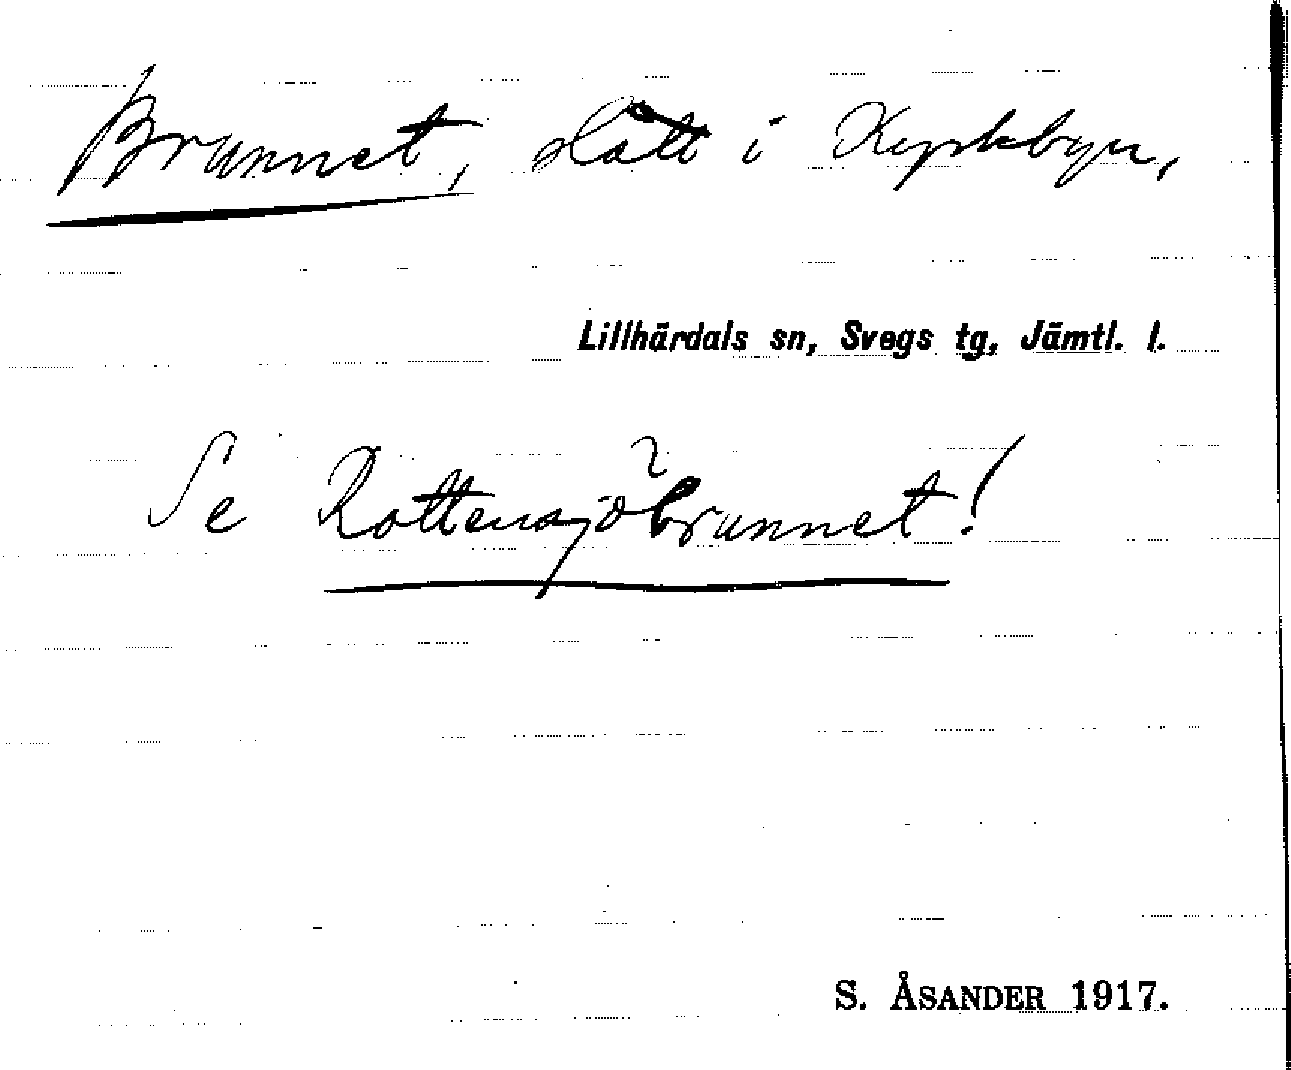 Brunnet, slått i Kyrkbyn,
Lillhärdals sn, Svegs tg, Jämtl. l.
Se Rottensjöbrunnet!
S. ÅSANDER 1917.